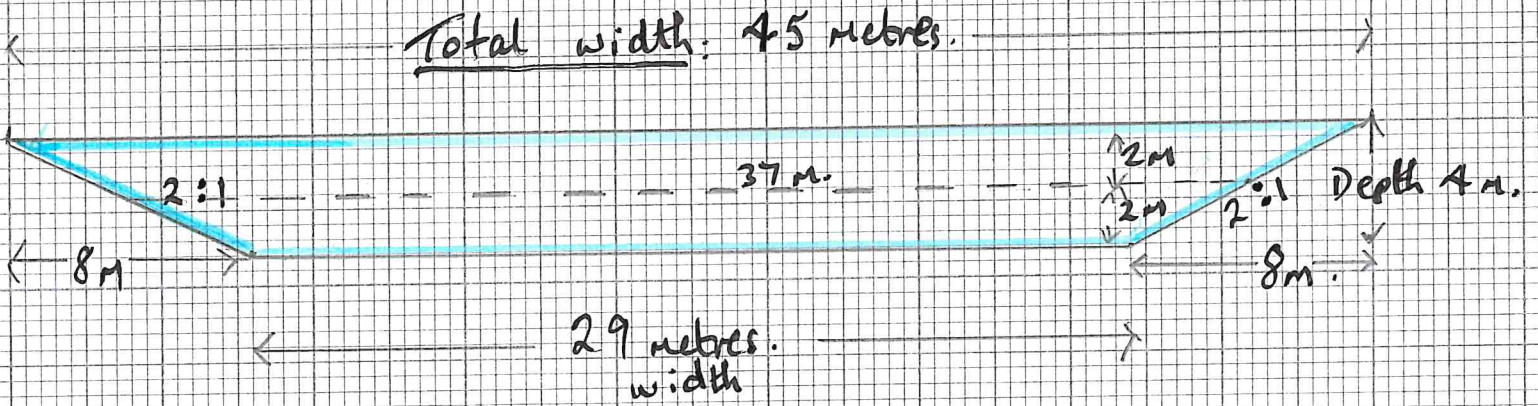 Total width: 45 metres.
2:1
37 m.
2m
2m
2:1
Depth 4m.
8m
8m.
29 metres.
width